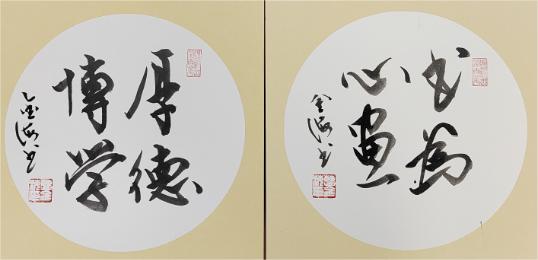 厚德
博学
金海书
书为
心画
金海书